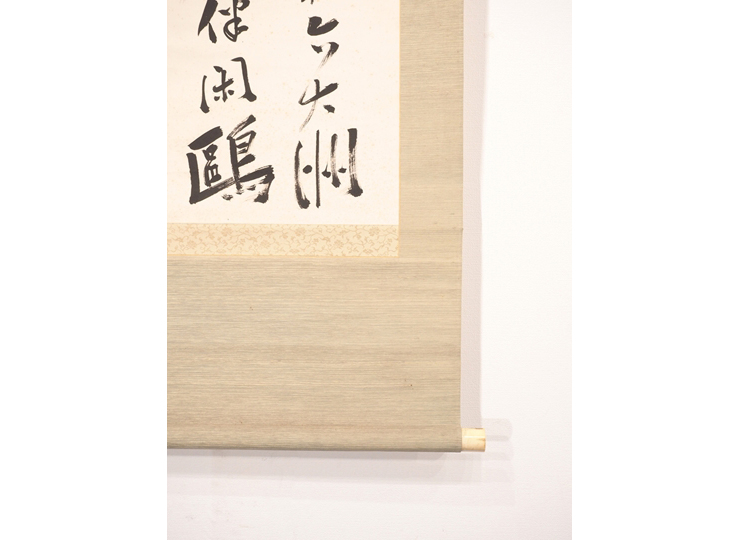 六大洲
伴閑鷗